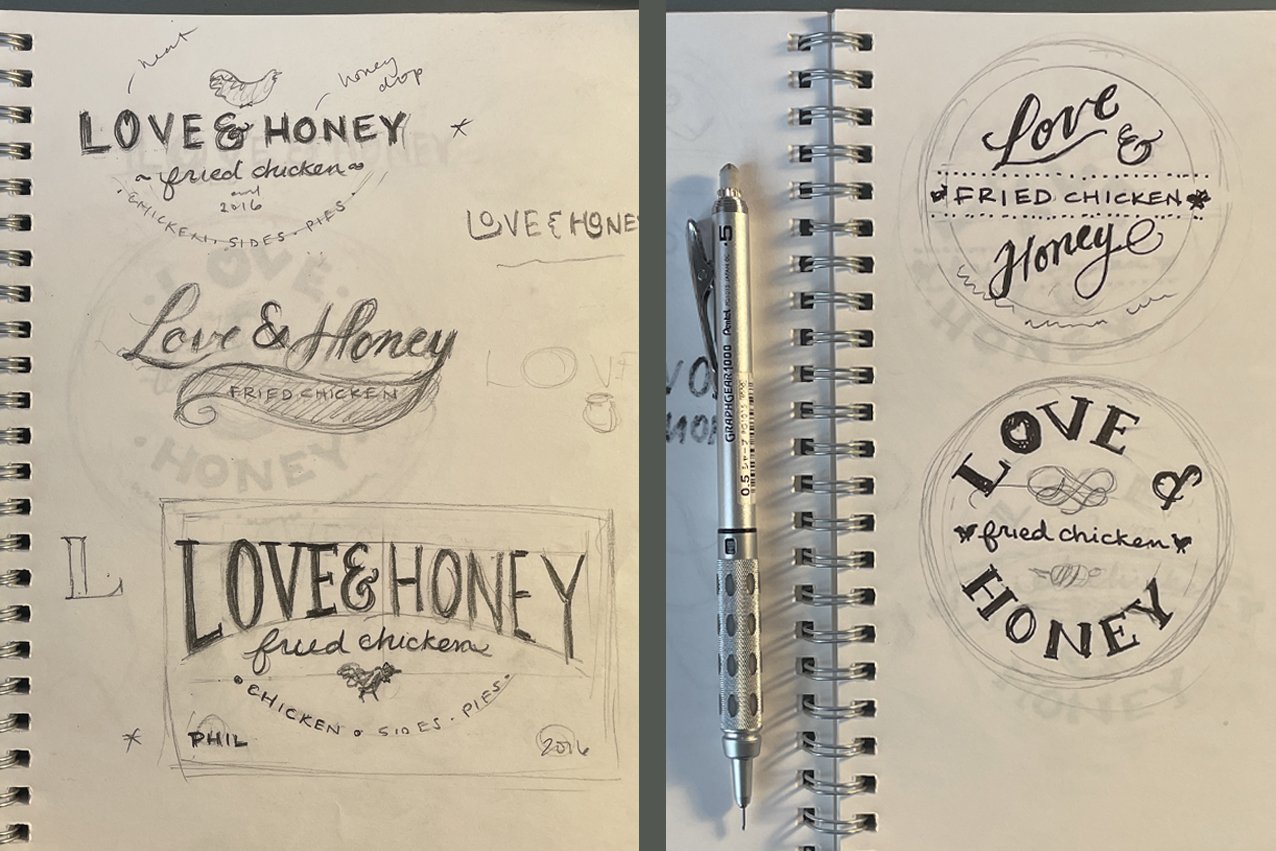 heart
honey
drop
LOVE & HONEY
fried chicken
and
2016
CHICKEN · SIDES · PIES
LOVE & HONEY
Love & Honey
FRIED CHICKEN
LOVE
L
LOVE & HONEY
fried chicken
CHICKEN · SIDES · PIES
PHIL
2016
.5
Pentel
GRAPHGEAR 1000
0.5
Love
&
FRIED CHICKEN
Honey
LOVE &
fried chicken
HONEY